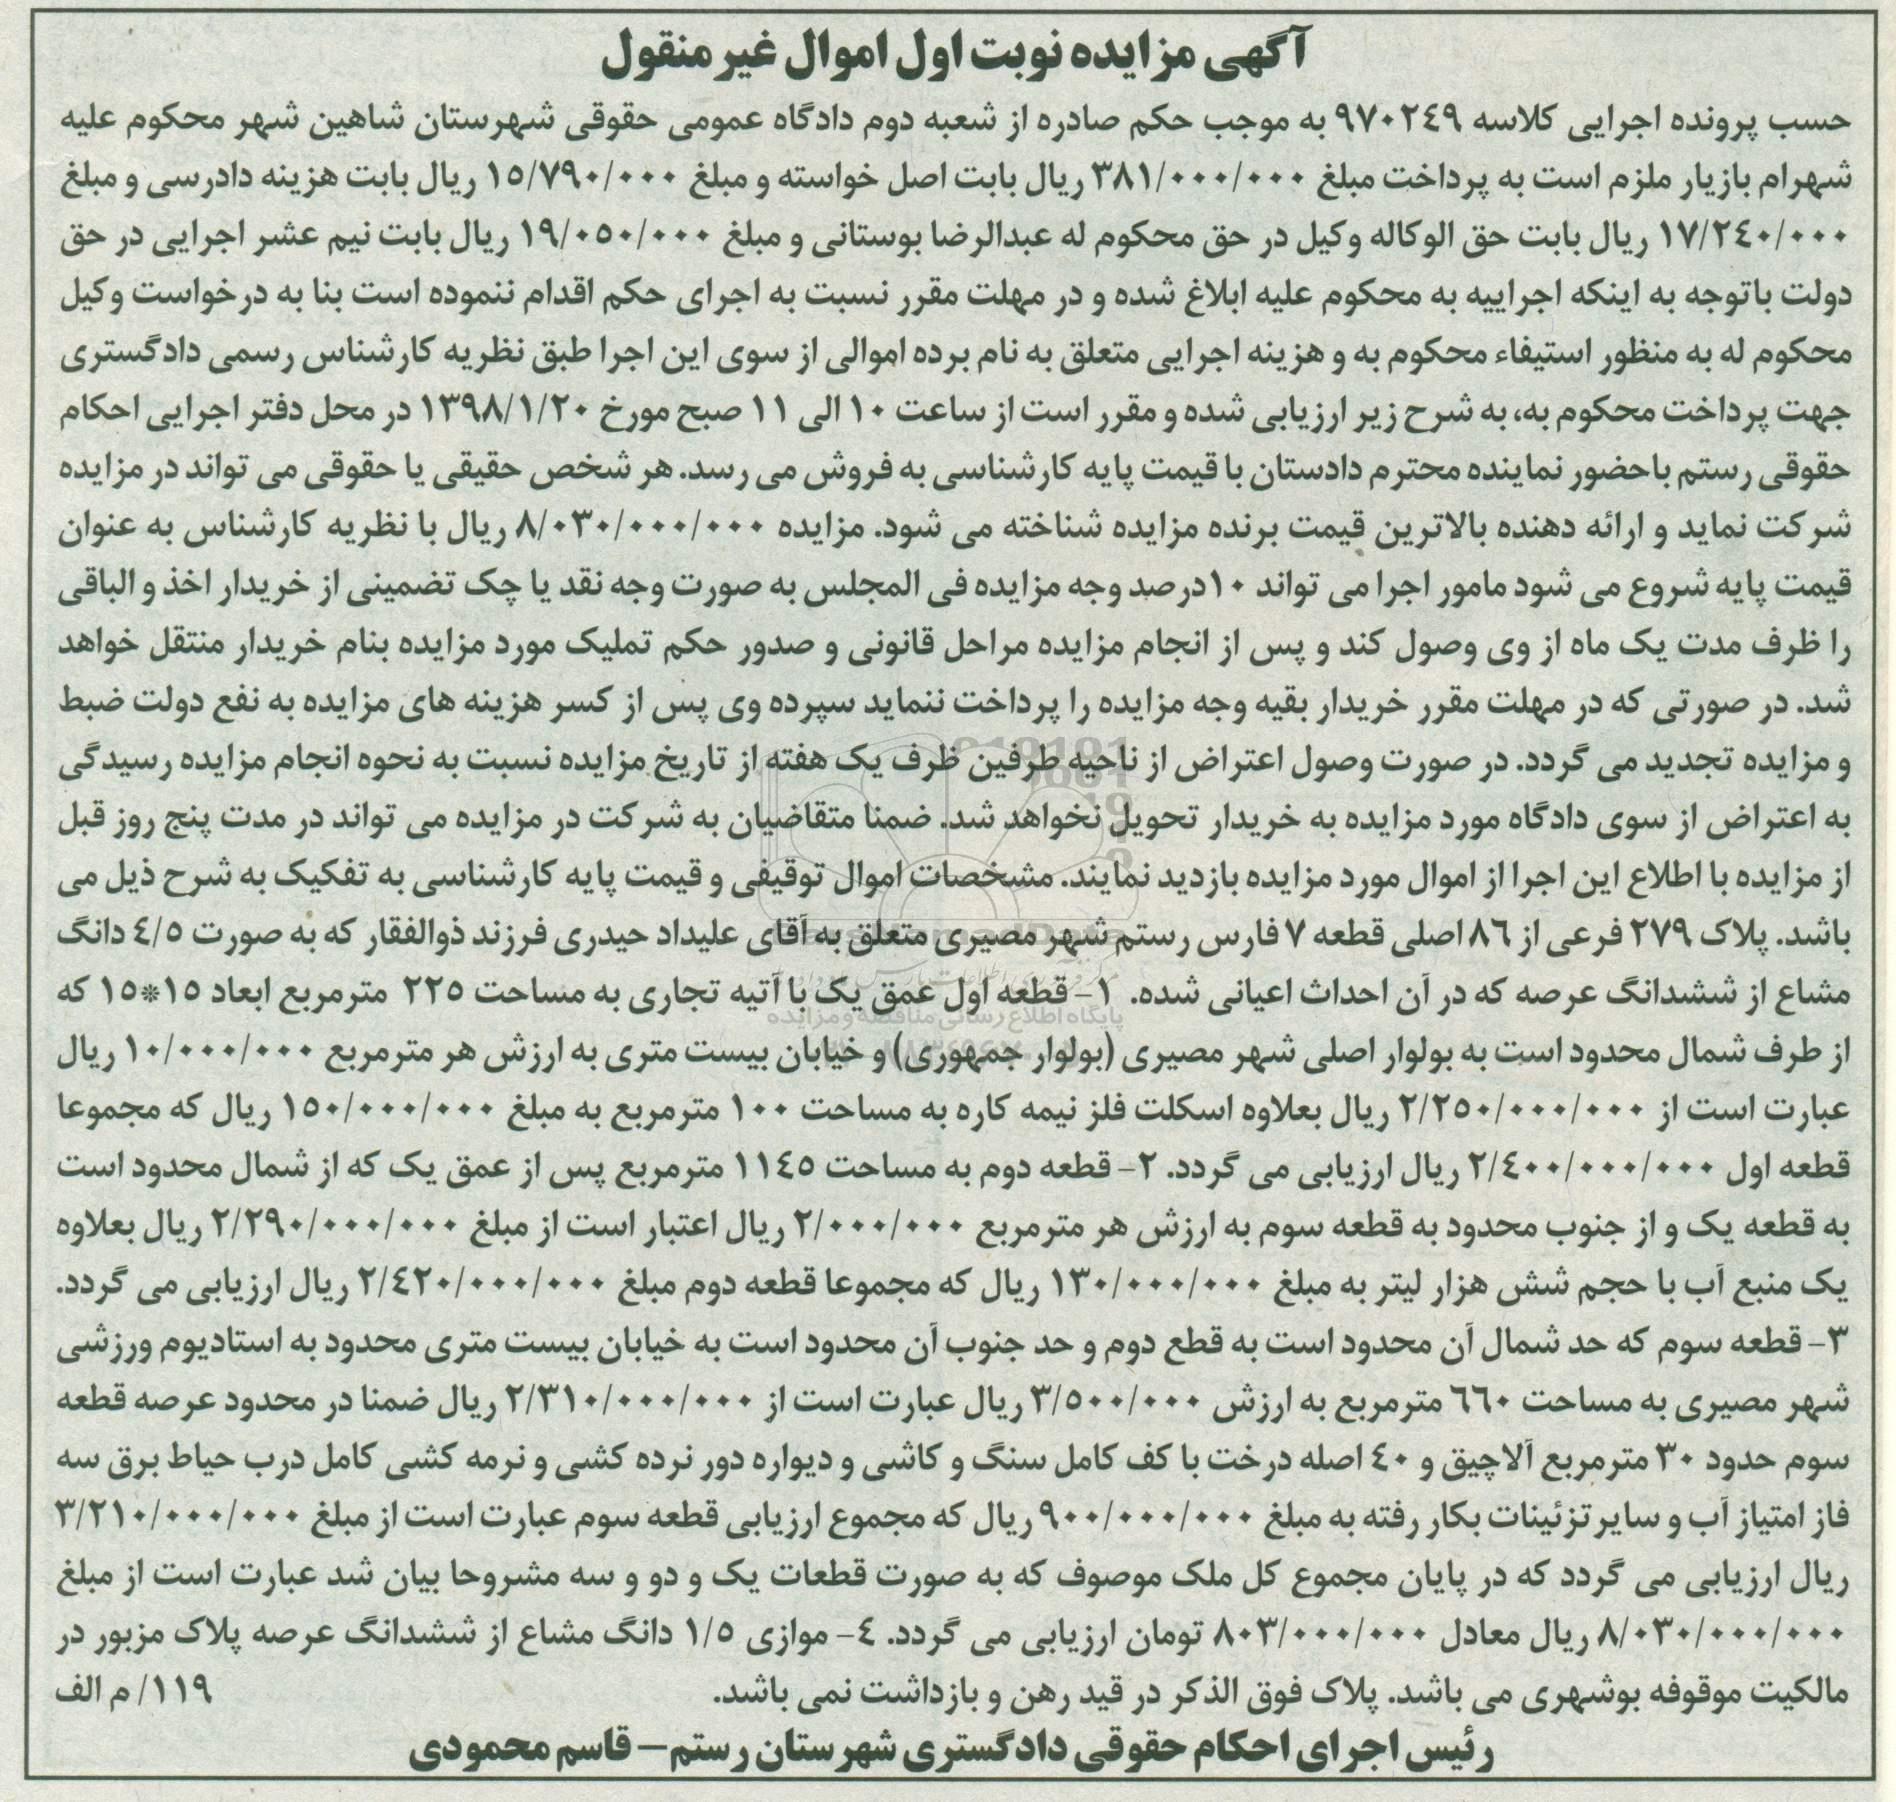 آگهی مزایده نوبت اول اموال غیر منقول
حسب پرونده اجرایی کلاسه ۹۷۰۲٤۹ به موجب حکم صادره از شعبه دوم دادگاه عمومی حقوقی شهرستان شاهین شهر محکوم علیه
شهرام بازیار ملزم است به پرداخت مبلغ ۳۸۱/۰۰۰/۰۰۰ ریال بابت اصل خواسته و مبلغ ۱٥/۷۹۰/۰۰۰ ریال بابت هزینه دادرسی و مبلغ
۱۷/۲٤۰/۰۰۰ ریال بابت حق الوکاله وکیل در حق محکوم له عبدالرضا بوستانی و مبلغ ۱۹/۰٥۰/۰۰۰ ریال بابت نیم عشر اجرایی در حق
دولت باتوجه به اینکه اجراییه به محکوم علیه ابلاغ شده و در مهلت مقرر نسبت به اجرای حکم اقدام ننموده است بنا به درخواست وکیل
محکوم له به منظور استیفاء محکوم به و هزینه اجرایی متعلق به نام برده اموالی از سوی این اجرا طبق نظریه کارشناس رسمی دادگستری
جهت پرداخت محکوم به، به شرح زیر ارزیابی شده و مقرر است از ساعت ۱۰ الی ۱۱ صبح مورخ ۱۳۹۸/۱/۲۰ در محل دفتر اجرایی احکام
حقوقی رستم باحضور نماینده محترم دادستان با قیمت پایه کارشناسی به فروش می رسد. هر شخص حقیقی یا حقوقی می تواند در مزایده
شرکت نماید و ارائه دهنده بالاترین قیمت برنده مزایده شناخته می شود. مزایده ۸/۰۳۰/۰۰۰/۰۰۰ ریال با نظریه کارشناس به عنوان
قیمت پایه شروع می شود مامور اجرا می تواند ۱۰درصد وجه مزایده فی المجلس به صورت وجه نقد یا چک تضمینی از خریدار اخذ و الباقی
را ظرف مدت یک ماه از وی وصول کند و پس از انجام مزایده مراحل قانونی و صدور حکم تملیک مورد مزایده بنام خریدار منتقل خواهد
شد. در صورتی که در مهلت مقرر خریدار بقیه وجه مزایده را پرداخت ننماید سپرده وی پس از کسر هزینه های مزایده به نفع دولت ضبط
و مزایده تجدید می گردد. در صورت وصول اعتراض از ناحیه طرفین ظرف یک هفته از تاریخ مزایده نسبت به نحوه انجام مزایده رسیدگی
به اعتراض از سوی دادگاه مورد مزایده به خریدار تحویل نخواهد شد. ضمنا متقاضیان به شرکت در مزایده می تواند در مدت پنج روز قبل
از مزایده با اطلاع این اجرا از اموال مورد مزایده بازدید نمایند. مشخصات اموال توقیفی و قیمت پایه کارشناسی به تفکیک به شرح ذیل می
باشد. پلاک ۲۷۹ فرعی از ۸٦ اصلی قطعه ۷ فارس رستم شهر مصیری متعلق به آقای علیداد حیدری فرزند ذوالفقار که به صورت ٤/٥ دانگ
مشاع از ششدانگ عرصه که در آن احداث اعیانی شده. ۱- قطعه اول عمق یک با آتیه تجاری به مساحت ۲۲٥ مترمربع ابعاد ۱٥*۱٥ که
از طرف شمال محدود است به بولوار اصلی شهر مصیری (بولوار جمهوری) و خیابان بیست متری به ارزش هر مترمربع ۱۰/۰۰۰/۰۰۰ ریال
عبارت است از ۲/۲٥۰/۰۰۰/۰۰۰ ریال بعلاوه اسکلت فلز نیمه کاره به مساحت ۱۰۰ مترمربع به مبلغ ۱٥۰/۰۰۰/۰۰۰ ریال که مجموعا
قطعه اول ۲/٤۰۰/۰۰۰/۰۰۰ ریال ارزیابی می گردد. ۲- قطعه دوم به مساحت ۱۱٤٥ مترمربع پس از عمق یک که از شمال محدود است
به قطعه یک و از جنوب محدود به قطعه سوم به ارزش هر مترمربع ۲/۰۰۰/۰۰۰ ریال اعتبار است از مبلغ ۲/۲۹۰/۰۰۰/۰۰۰ ریال بعلاوه
یک منبع آب با حجم شش هزار لیتر به مبلغ ۱۳۰/۰۰۰/۰۰۰ ریال که مجموعا قطعه دوم مبلغ ۲/٤۲۰/۰۰۰/۰۰۰ ریال ارزیابی می گردد.
۳- قطعه سوم که حد شمال آن محدود است به قطع دوم و حد جنوب آن محدود است به خیابان بیست متری محدود به استادیوم ورزشی
شهر مصیری به مساحت ٦٦۰ مترمربع به ارزش ۳/٥۰۰/۰۰۰ ریال عبارت است از ۲/۳۱۰/۰۰۰/۰۰۰ ریال ضمنا در محدود عرصه قطعه
سوم حدود ۳۰ مترمربع آلاچیق و ٤۰ اصله درخت با کف کامل سنگ و کاشی و دیواره دور نرده کشی و نرمه کشی کامل درب حیاط برق سه
فاز امتیاز آب و سایر تزئینات بکار رفته به مبلغ ۹۰۰/۰۰۰/۰۰۰ ریال که مجموع ارزیابی قطعه سوم عبارت است از مبلغ ۳/۲۱۰/۰۰۰/۰۰۰
ریال ارزیابی می گردد که در پایان مجموع کل ملک موصوف که به صورت قطعات یک و دو و سه مشروحا بیان شد عبارت است از مبلغ
۸/۰۳۰/۰۰۰/۰۰۰ ریال معادل ۸۰۳/۰۰۰/۰۰۰ تومان ارزیابی می گردد. ٤- موازی ۱/٥ دانگ مشاع از ششدانگ عرصه پلاک مزبور در
مالکیت موقوفه بوشهری می باشد. پلاک فوق الذکر در قید رهن و بازداشت نمی باشد. ۱۱۹/ م الف
رئیس اجرای احکام حقوقی دادگستری شهرستان رستم – قاسم محمودی
پایگاه اطلاع رسانی مناقصه و مزایده